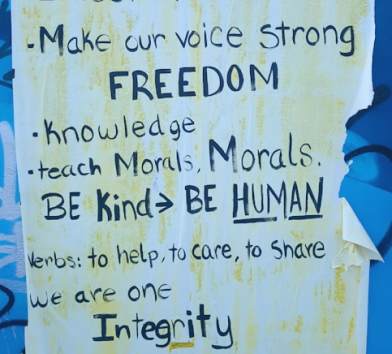 -Make our voice strong
FREEDOM
•Knowledge
•teach Morals, Morals.
BE Kind→ BE HUMAN
Verbs: to help, to care, to share
we are one
Integrity